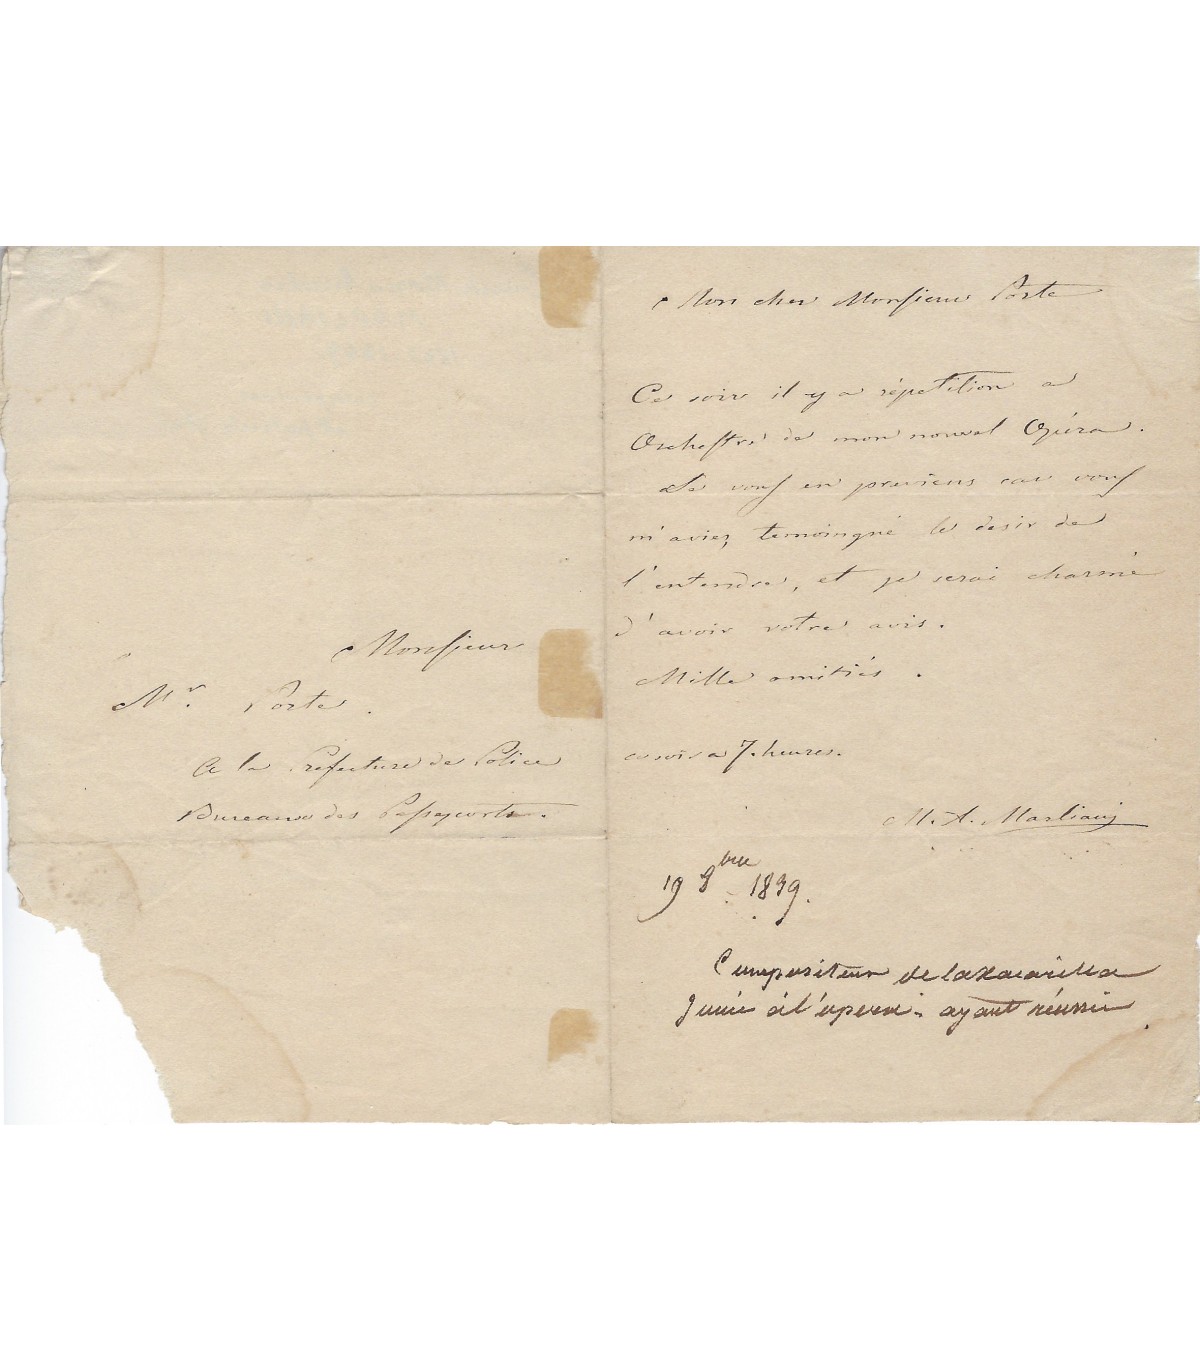 Monsieur
Mr. Porte.
A la Prefecture de Police
Bureaux des Passeports.
Mon cher Monsieur Porte
Ce soir il y a répetition a
Orchestre de mon nouvel Opéra.
Je vous en previens car vous
m'aviez temoingné le desir de
l'entendre, et je serai charmé
d'avoir votre avis.
Mille amitiés.
ce soir a 7. heures.
M. A. Marliani
19 8bre 1839.
Compositeur de la Xacarilla
Jouée à l'opera. ayant réussi